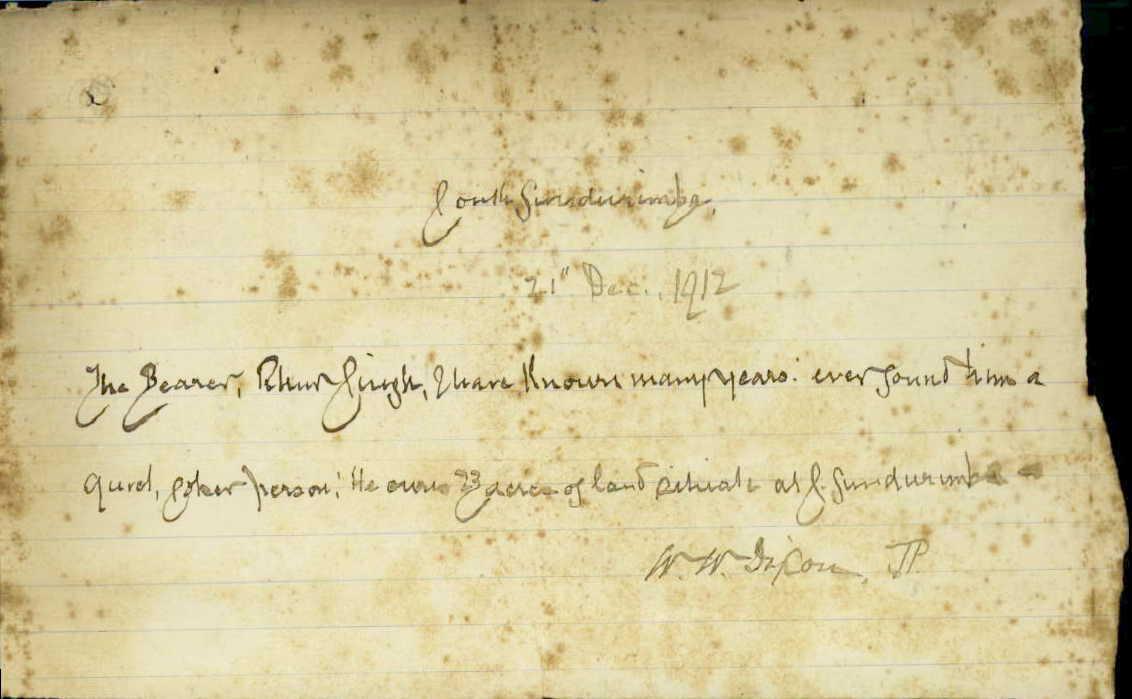 South Gundurimba,
21" Dec., 1912
The Bearer, Singh, I have Known many years. ever found him a
quiet, sober person; He owns 23 acres of land situate at S. Gundurimba
W. W. Dixon, JP